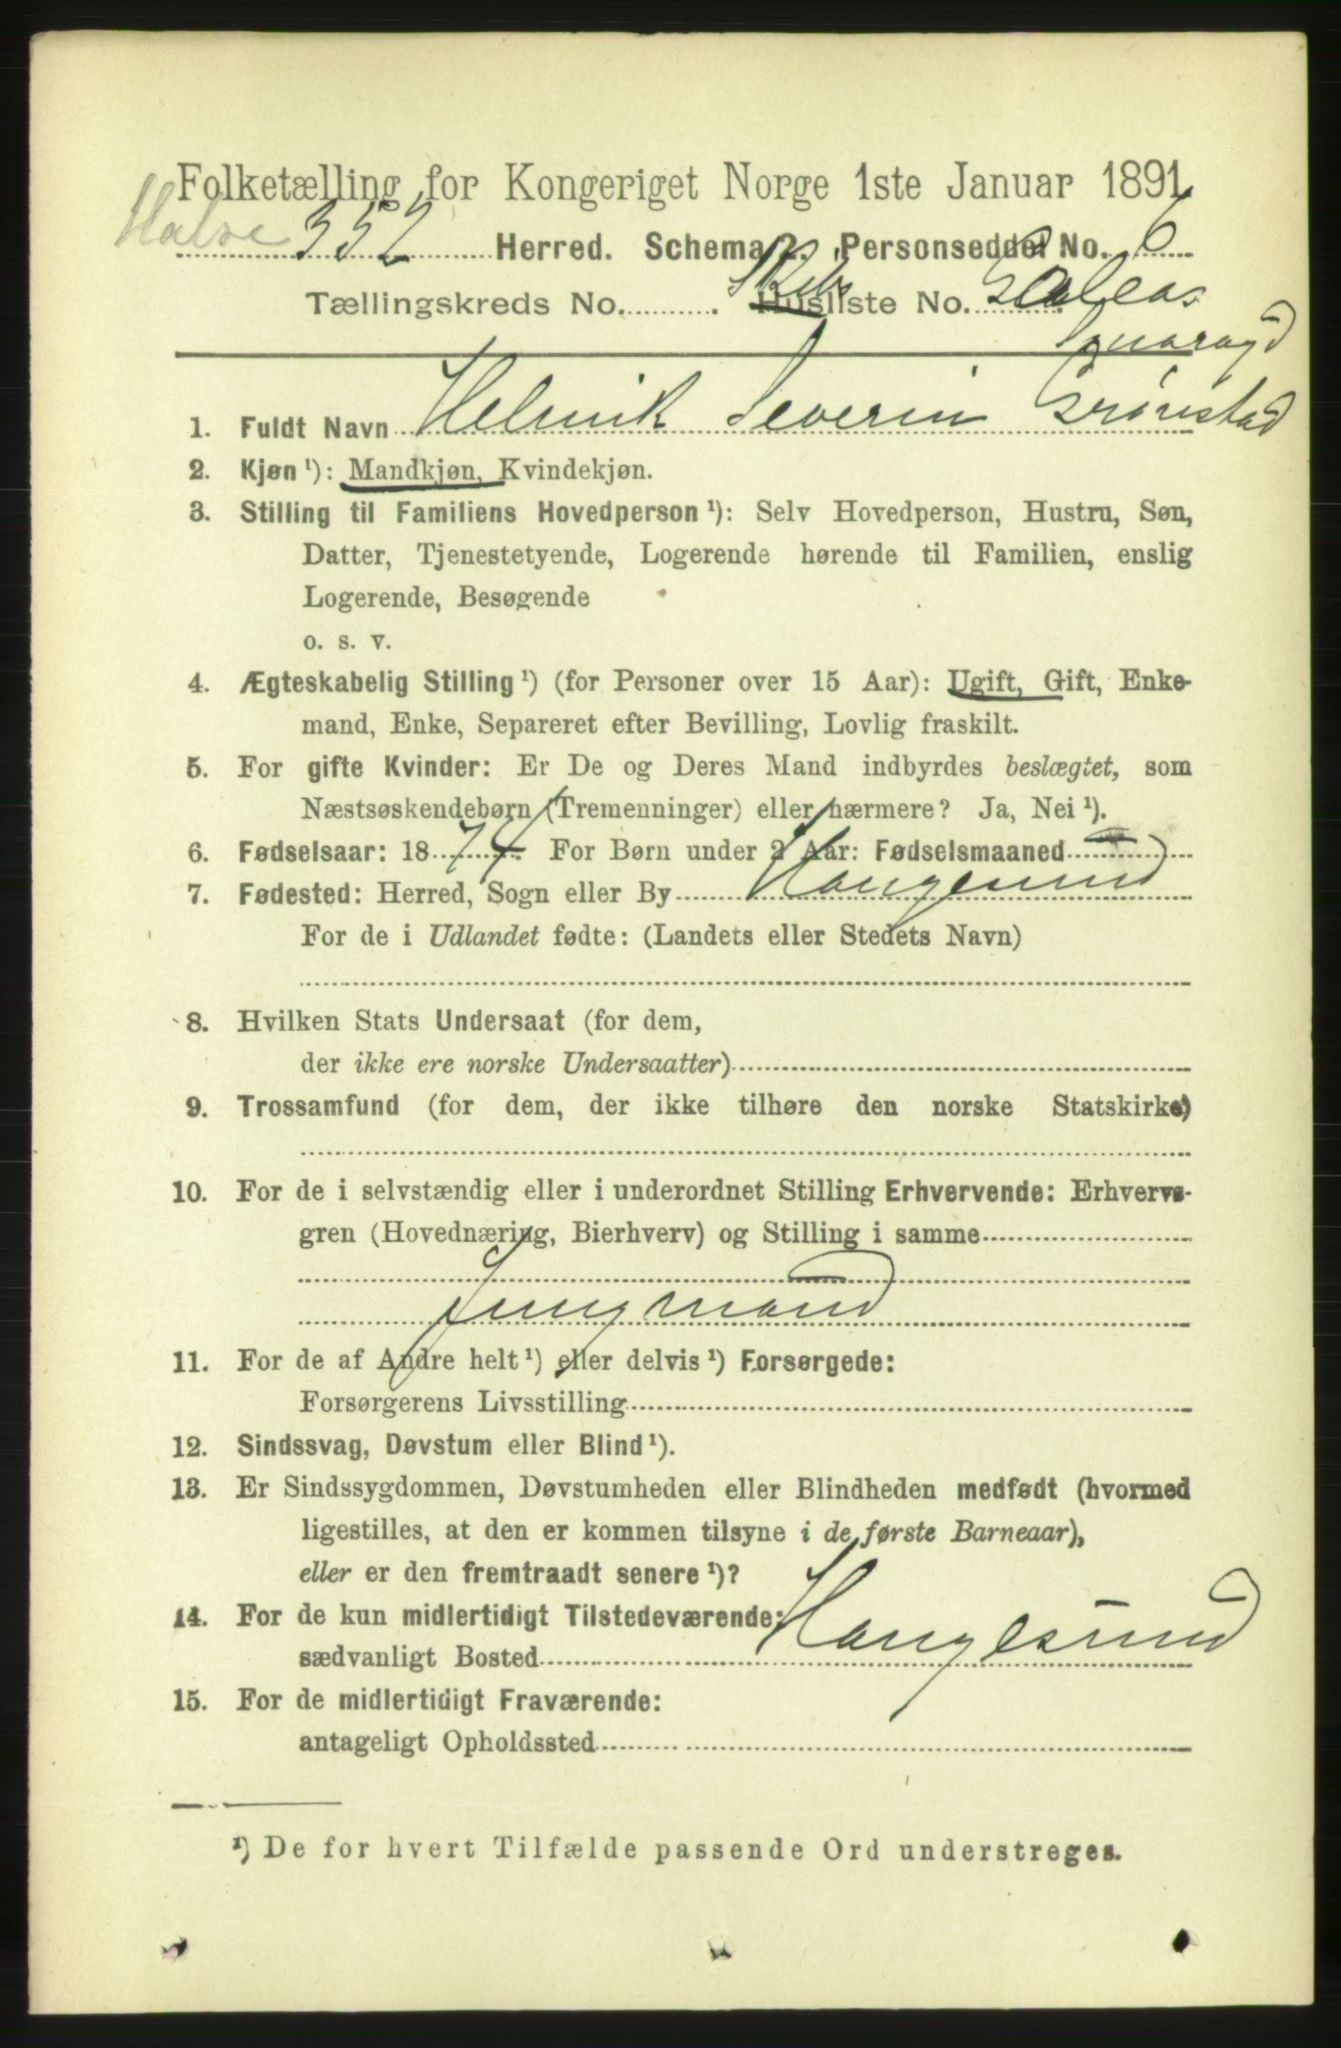 Folketælling for Kongeriget Norge 1ste Januar 1891.
352 Herred. Schema 2. Personseddel No. 6
Tællingskreds No. . Skibs Husliste No. Galeas
Smaragd
1. Fuldt Navn Helmik Severin Grönstad
2. Kjøn ¹): Mandkjøn, Kvindekjøn.
3. Stilling til Familiens Hovedperson ¹): Selv Hovedperson, Hustru, Søn,
Datter, Tjenestetyende, Logerende hørende til Familien, enslig
Logerende, Besøgende
o. s. v.
4. Ægteskabelig Stilling ¹) (for Personer over 15 Aar): Ugift, Gift, Enke-
mand, Enke, Separeret efter Bevilling, Lovlig fraskilt.
5. For gifte Kvinder: Er De og Deres Mand indbyrdes beslægtet, som
Næstsøskendebørn (Tremenninger) eller nærmere? Ja, Nei ¹).
6. Fødselsaar: 1874. For Børn under 2 Aar: Fødselsmaaned
7. Fødested: Herred, Sogn eller By Haugesund
For de i Udlandet fødte: (Landets eller Stedets Navn)
8. Hvilken Stats Undersaat (for dem,
der ikke ere norske Undersaatter)
9. Trossamfund (for dem, der ikke tilhøre den norske Statskirke)
10. For de i selvstændig eller i underordnet Stilling Erhvervende: Erhvervs-
gren (Hovednæring, Bierhverv) og Stilling i samme
Jungmand
11. For de af Andre helt ¹) eller delvis ¹) Forsørgede:
Forsørgerens Livsstilling
12. Sindssvag, Døvstum eller Blind ¹).
13. Er Sindssygdommen, Døvstumheden eller Blindheden medfødt (hvormed
ligestilles, at den er kommen tilsyne i de første Barneaar),
eller er den fremtraadt senere ¹)?
14. For de kun midlertidigt Tilstedeværende:
sædvanligt Bosted Haugesund
15. For de midlertidigt Fraværende:
antageligt Opholdssted
¹) De for hvert Tilfælde passende Ord understreges.